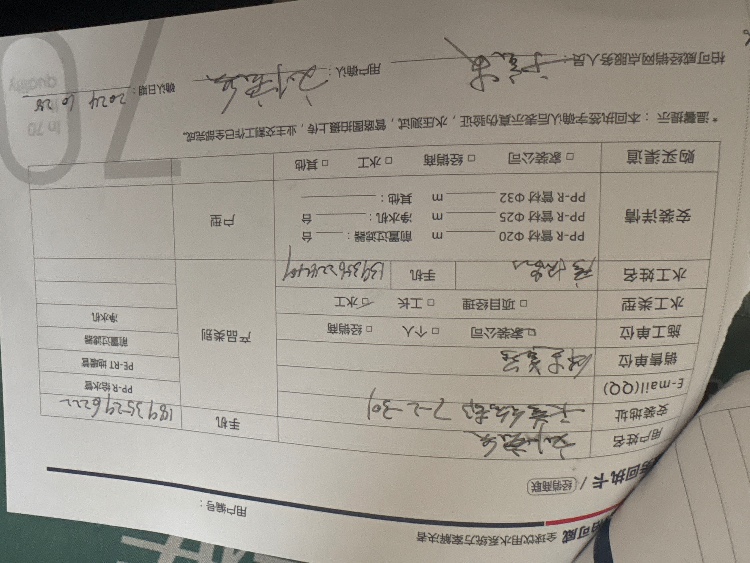 可威 全球饮用水系统方案解决者
用户编号：
回执卡 / 经销商联
用户姓名
手机 18935296222
安装地址 7-2-301
E-mail(QQ)
销售单位
施工单位 □ 家装公司 □ 个人 □ 经销商
水工类型 □ 项目经理 □ 工长 □ 水工
水工姓名 手机
产品类别
PP-R 给水管
PE-RT 地暖管
前置过滤器
净水机
安装详情
PP-R 管材 Φ20 m 前置过滤器： 台
PP-R 管材 Φ25 m 净水机： 台
PP-R 管材 Φ32 m 其他：
户型
购买渠道 □ 家装公司 □ 经销商 □ 水工 □ 其他
*温馨提示：本回执签字确认后表示真伪验证，水压测试，管路图拍摄上传，业主交割工作已全部完成。
柏可威经销网点服务人员：
用户确认：
确认日期：2024 10 28
70
quality
in 70